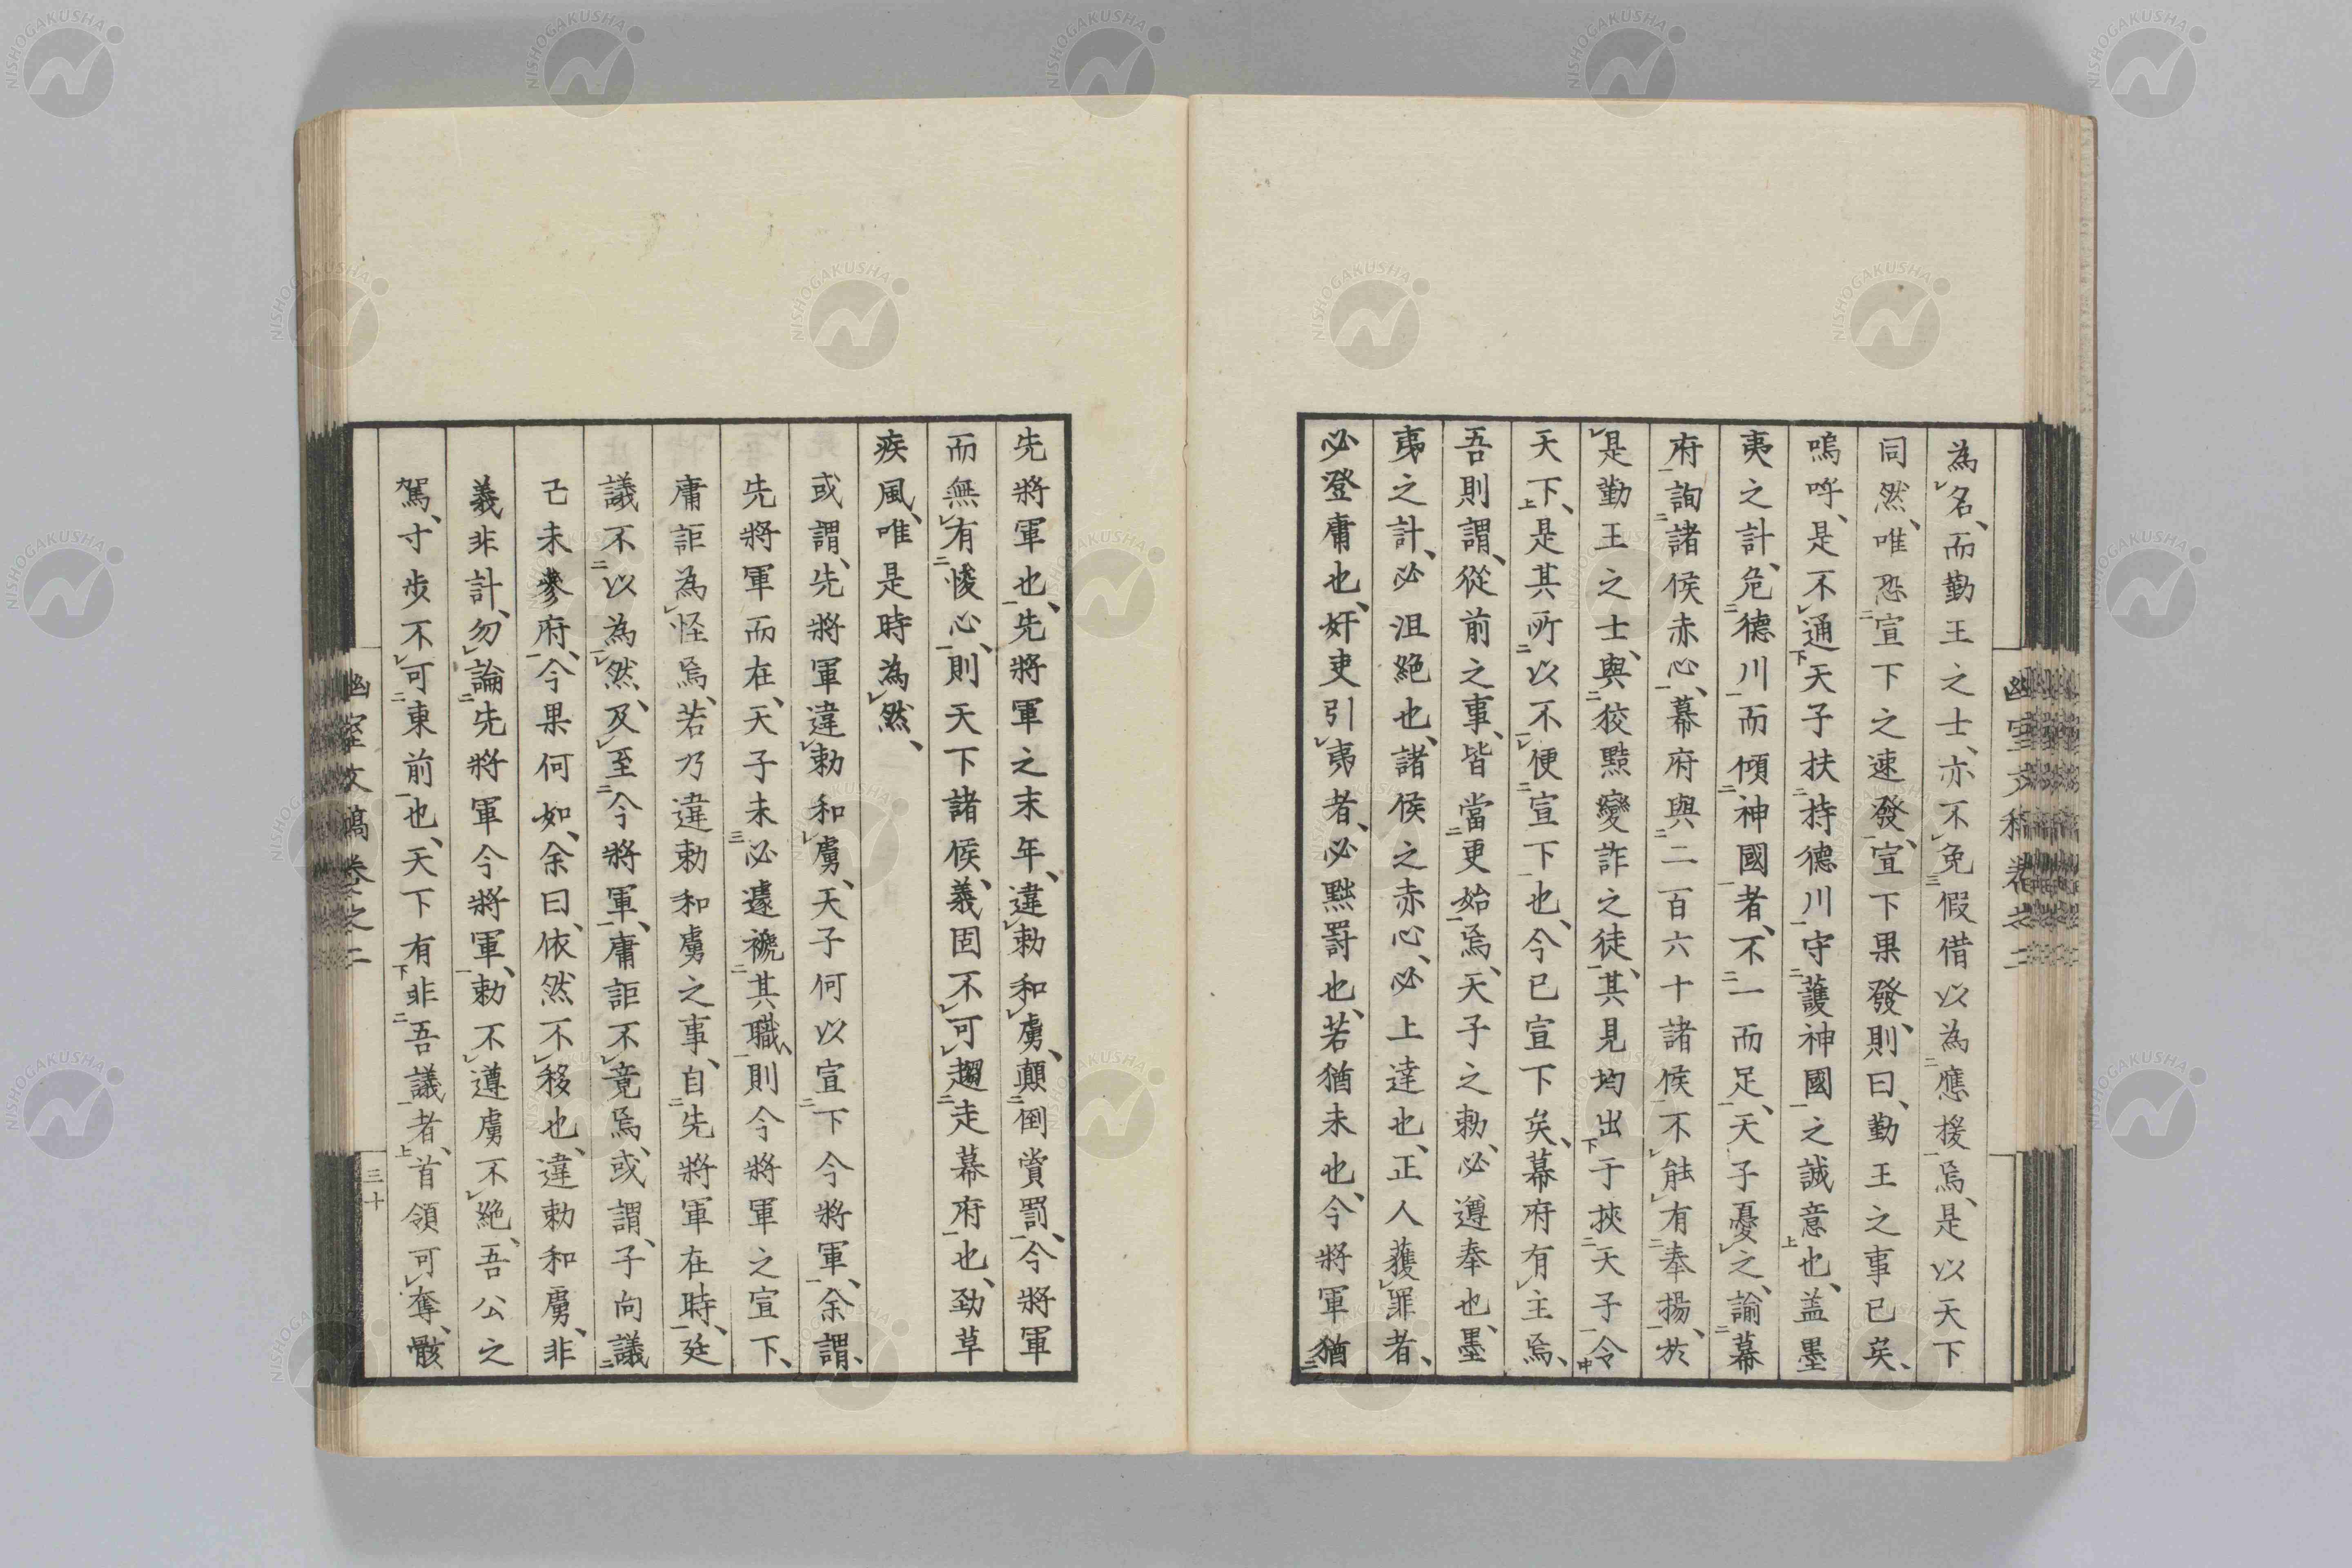 為名、而勤王之士、亦不免假借以為應援焉、是以天下
同然、唯恐宣下之速發、宣下果發、則曰、勤王之事已矣、
嗚呼、是不通天子扶持德川守護神國之誠意也、蓋墨
夷之計、危德川而傾神國者、不一而足、天子憂之、諭幕
府詢諸侯赤心、幕府與二百六十諸侯不能有奉揚、於
是勤王之士、與狡黠變詐之徒、其見均出于挾天子令
天下、是其所以不便宣下也、今已宣下矣、幕府有主焉、
吾則謂、從前之事、皆當更始焉、天子之勅、必遵奉也、墨
夷之計、必沮絕也、諸侯之赤心、必上達也、正人獲罪者、
必登庸也、奸吏引夷者、必黜罰也、若猶未也、今將軍猶
幽室文稿卷之二
先將軍也、先將軍之末年、違勅和虜、顛倒賞罰、今將軍
而無有悛心、則天下諸侯、義固不可趨走幕府也、勁草
疾風、唯是時為然、
或謂、先將軍違勅和虜、天子何以宣下今將軍、余謂、
先將軍而在、天子未必遽褫其職、則今將軍之宣下、
庸詎為怪焉、若乃違勅和虜之事、自先將軍在時、廷
議不以為然、及至今將軍、庸詎不竟焉、或謂、子向議
己未參府、今果何如、余曰、依然不移也、違勅和虜、非
義非計、勿論先將軍今將軍、勅不遵虜不絕、吾公之
駕、寸步不可東前也、天下有非吾議者、首領可奪、骸
幽室文稿卷之二
三十
NISHOGAKUSHA